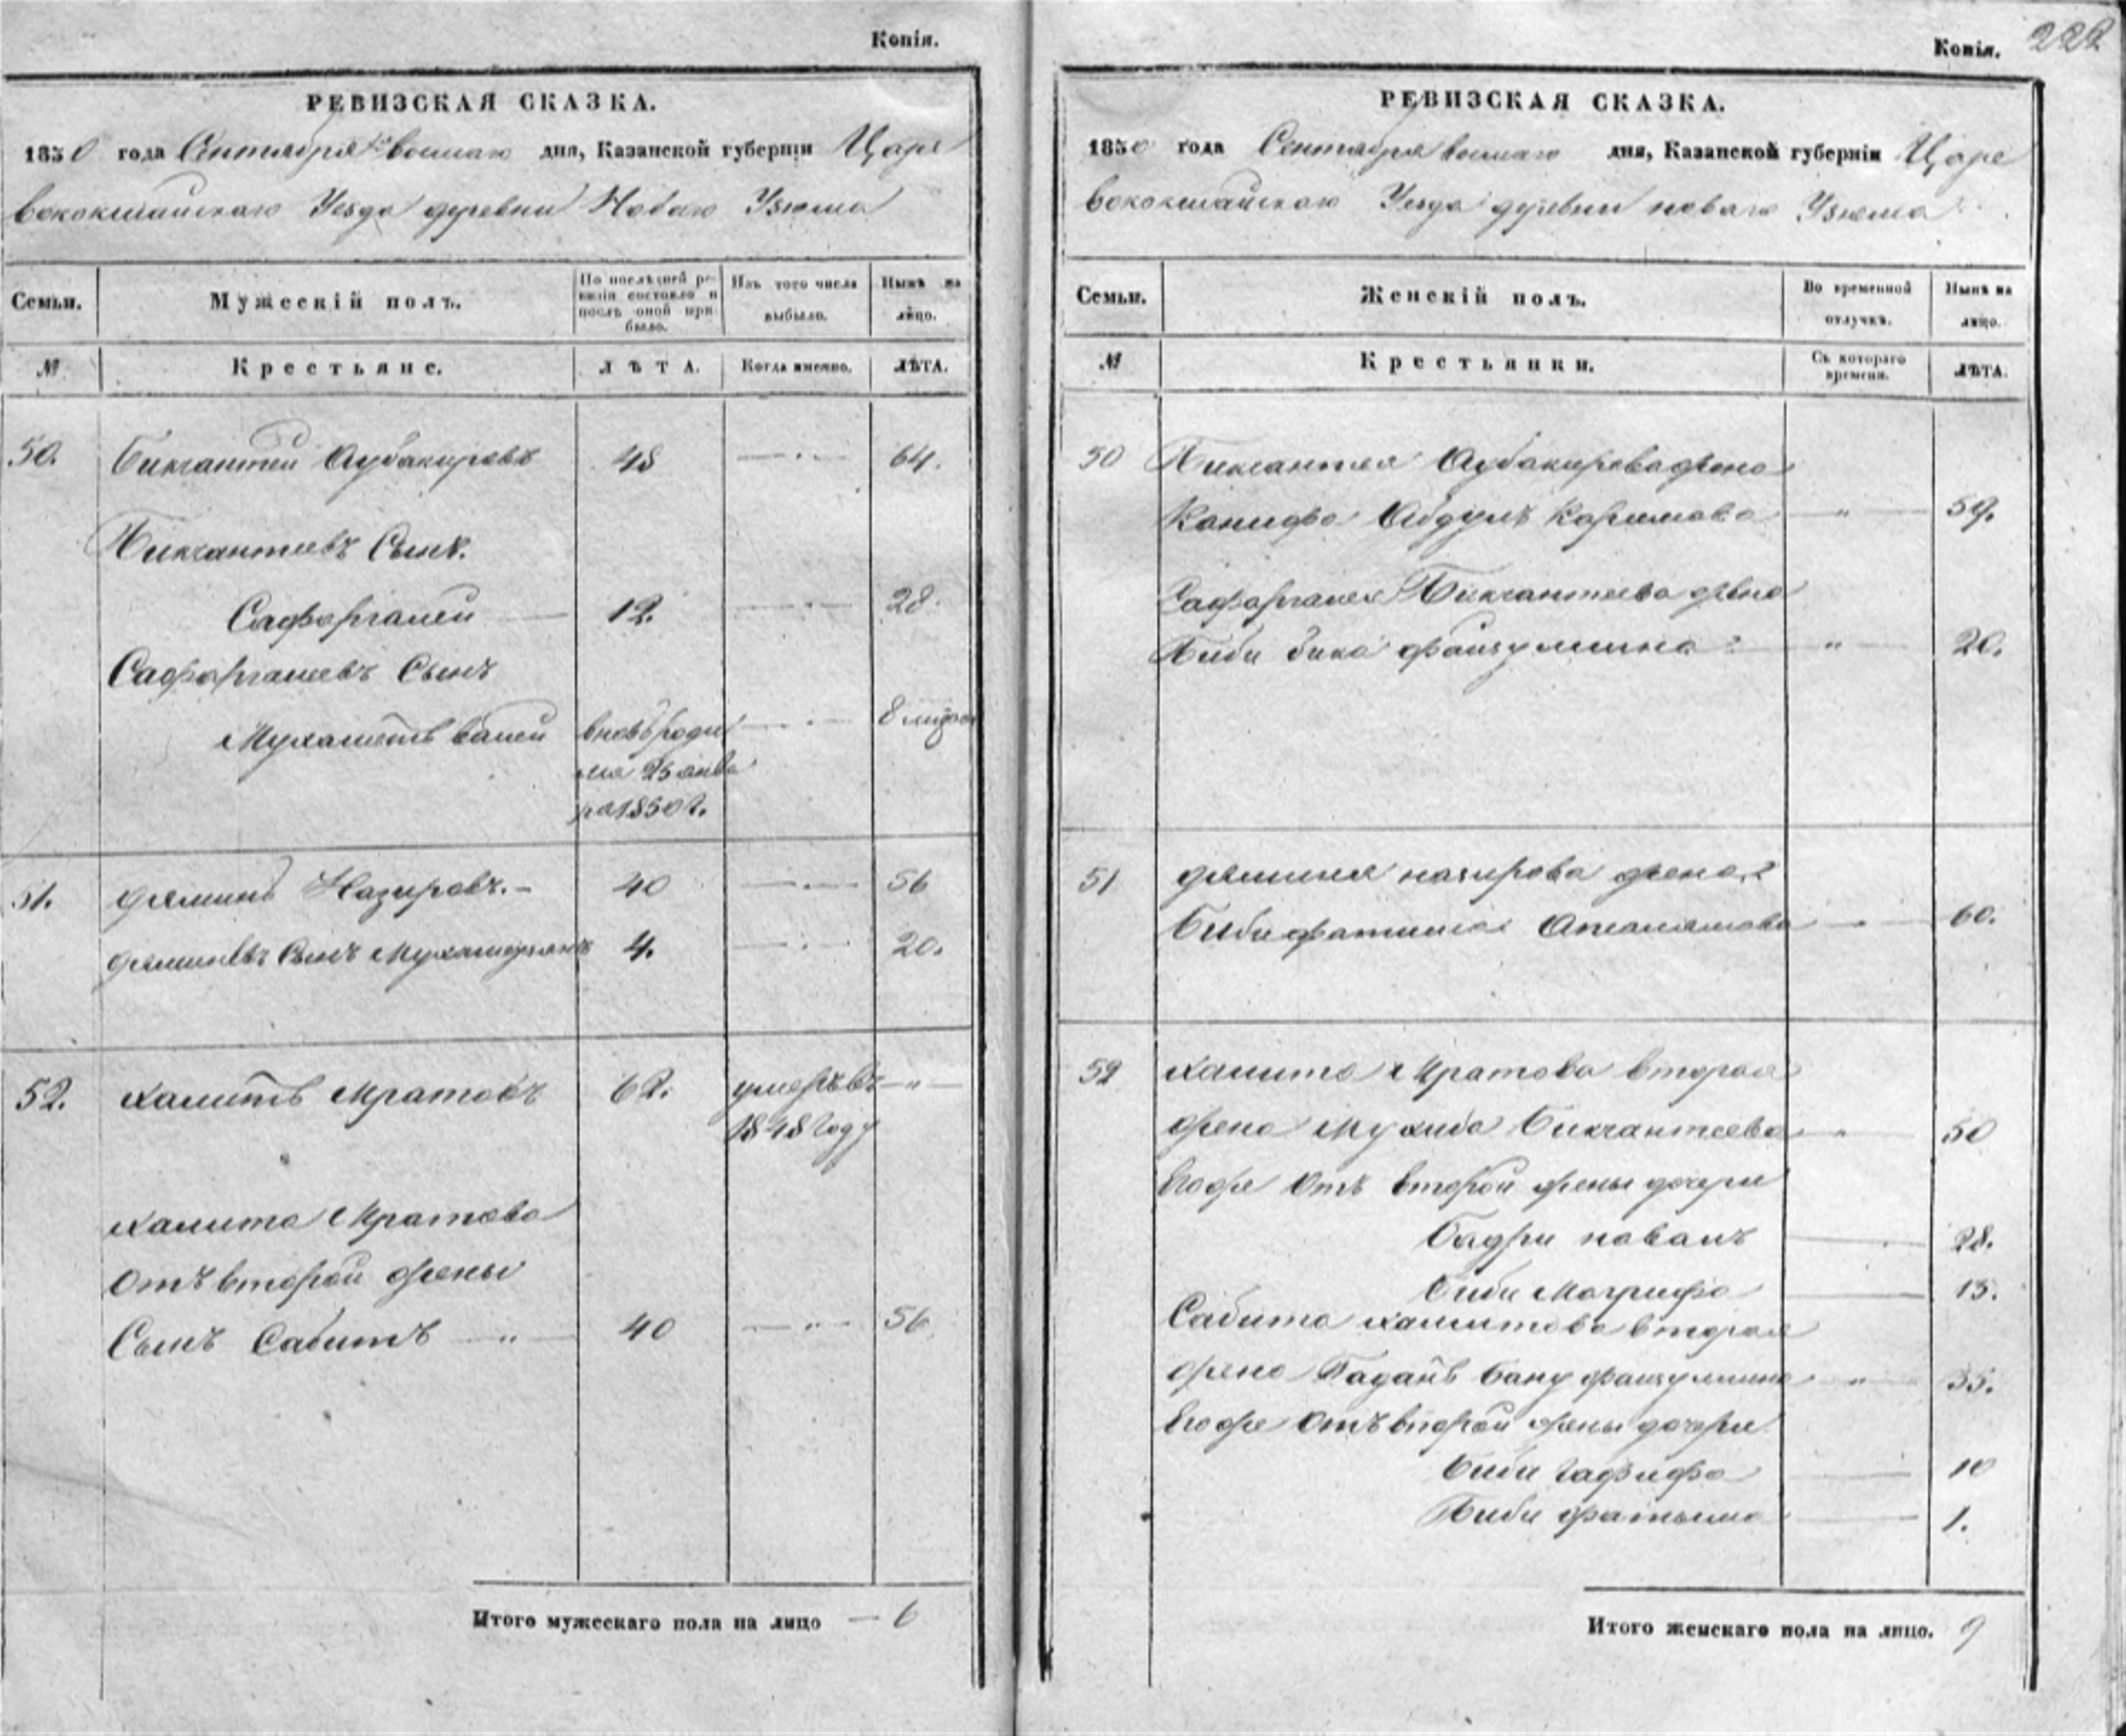 Копія.
РЕВИЗСКАЯ СКАЗКА.
1850 года Сентября восмаго дня, Казанской губерніи Царе
вококшайскаго Уезда деревни Новаго Узюма
Семьи.
Мужескій полъ.
По послѣдней ре-
визіи состояло и
послѣ оной при-
было.
Изъ того числа
выбыло.
Нынѣ на
лицо.
№
Крестьяне.
ЛѢТА.
Когда именно.
ЛѢТА.
50. Бикчантей Аубакировъ 48 — 64.
Бикчантеевъ Сынъ.
Сафаргалей — 12. — 28.
Сафаргалеевъ Сынъ
Мухаметъ валей вновь роди — 8 мцов
лся 25 янва
ря 1850 г.
51. Яминъ Назировъ. — 40 — 56
Яминевъ Сынъ Мухамедзянъ 4. — 20.
52. Халитъ Мратовъ 62. умеръ въ — " —
1848 году
Халита Мратова
Отъ второй жены
Сынъ Сабитъ — " — 40 — " — 56
Итого мужескаго пола на лицо — 6
Копія. 222
РЕВИЗСКАЯ СКАЗКА.
1850 года Сентября восмаго дня, Казанской губерніи Царе
вококшайскаго Уезда деревни новаго Узюма
Семьи.
Женскій полъ.
Во временной
отлучкѣ.
Нынѣ на
лицо.
№
Крестьянки.
Съ котораго
времени.
ЛѢТА.
50 Бикчантея Аубакирова жена
Ханифа Абдулъ Каримова — " — 59.
Сафаргалея Бикчантеева жена
Биби бика файзуллина — " — 20.
51 Яминя назирова жена
Биби фатима — 60.
52 Халита Мратова вторая
жена Мухиба Бикчантеева — " — 50
Егоже Отъ второй жены дочери
Бадри — 28.
Биби Магрифа — 15.
Сабита Халитова вторая
жена Бану файзуллина — " — 35.
Егоже Отъ второй жены дочери
Биби Гафифа — 10
Биби фатыма — 1.
Итого женскаго пола на лицо. 9